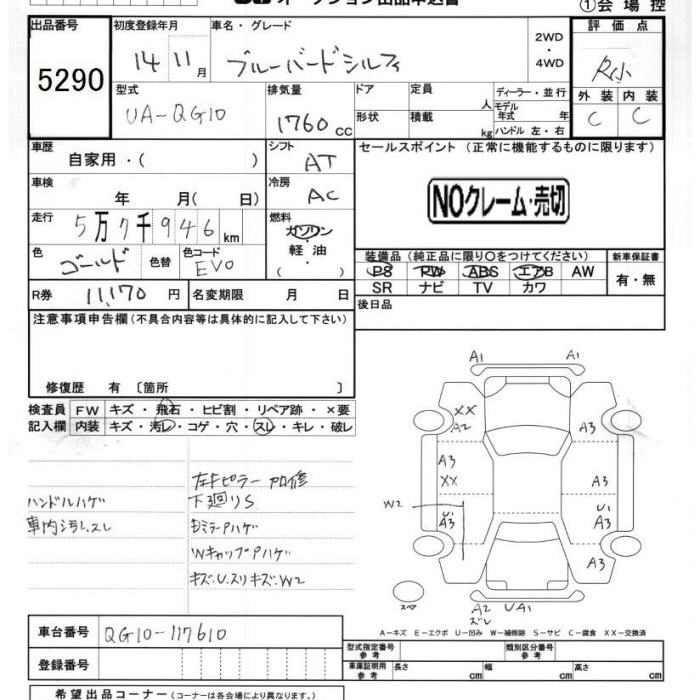 オークション出品申込書 ①会場控
出品番号 初度登録年月 車名・グレード 2WD 評価点
5290 14 11月 ブルーバードシルフィ ・ R小
4WD
型式 排気量 ドア 定員 ディーラー・並行 外装 内装
UA-QG10 1760 cc 形状 積載 人 モデル年式 年 C C
kg ハンドル 左・右
車歴 シフト セールスポイント (正常に機能するものに限ります)
自家用・( ) AT
車検 冷房
年 月( 日) AC NOクレーム・売切
走行 燃料
5万7千946km ガソリン
色 色替 色コード ・軽油・ 装備品(純正品に限り○をつけてください) 新車保証書
ゴールド EV0 ( ) PS PW ABS エアB AW 有・無
SR ナビ TV カワ
R券 11,170円 名変期限 月 日 後日品
注意事項申告欄(不具合内容等は具体的に記入して下さい)
修復歴 有 [箇所 ]
検査員 FW キズ・飛石・ヒビ割・リペア跡・×要
記入欄 内装 キズ・汚レ・コゲ・穴・スレ・キレ・破レ
左Fピラー 加修
ハンドルハゲ 下廻りS
車内汚レ、スレ
ミラーPハゲ
WキャップPハゲ
キズ.U.スリキズ.W2
A1 A1
XX
A2 A3
A3 A3
XX
W2 U1 U1
A3 A3
A3
スペア A2 UA1
ズレ
A-キズ E-エクボ U-凹み W-補修跡 S-サビ C-腐食 XX-交換済
車台番号 QG10-117610
登録番号 型式指定番号 参考 類別区分番号 参考
車庫証明用 参考 長さ cm 幅 cm 高さ cm
希望出品コーナー (コーナーは各会場により異なります。)